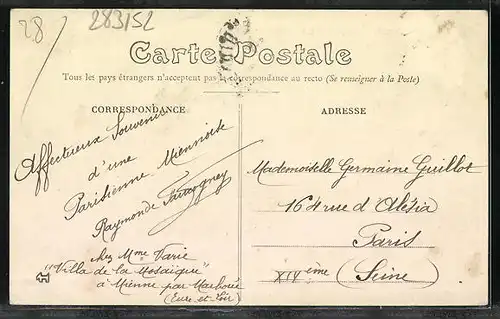 28
283/52
Carte Postale
Tous les pays étrangers n'acceptent pas la correspondance au recto (Se renseigner à la Poste)
CORRESPONDANCE
Affectueux Souvenir
d'une
Parisienne Miennoise
Raymonde
chez Mme Varie
"Villa de la Mosaïque"
à Mienne par Marboué
(Eure-et-Loir)
ADRESSE
Mademoiselle Germaine Guillot
164 rue d'Alésia
Paris
XIVème (Seine)